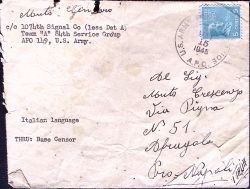 Muto Gennaro
c/o 1074th Signal Co (less Det A)
Team "A" 84th Service Group
APO 149, U.S. Army.
U.S. ARMY
15
1945
A.P.O.
Italian language
THRU: Base Censor
Al Sig.
Muto Crescenzo
Via Pigna
N° 51.
Afragola
Pro Napoli